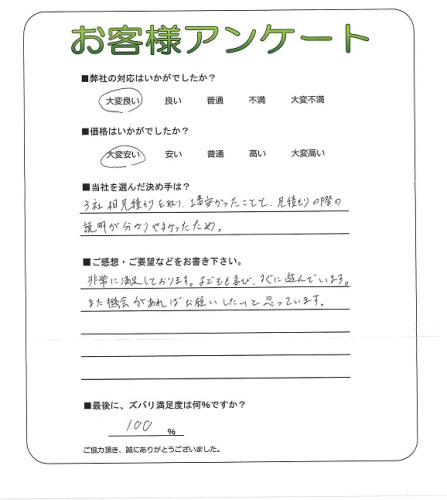 お客様アンケート
■弊社の対応はいかがでしたか?
大変良い 良い 普通 不満 大変不満
■価格はいかがでしたか?
大変安い 安い 普通 高い 大変高い
■当社を選んだ決め手は?
3社相見積りを取り、1番安かったことと、見積りの際の
説明が分かりやすかったため。
■ご感想・ご要望などをお書き下さい。
非常に満足しております。子どもも喜び、すぐに遊んでいます。
また機会があればお願いしたいと思っています。
■最後に、ズバリ満足度は何%ですか?
100 %
ご協力頂き、誠にありがとうございました。